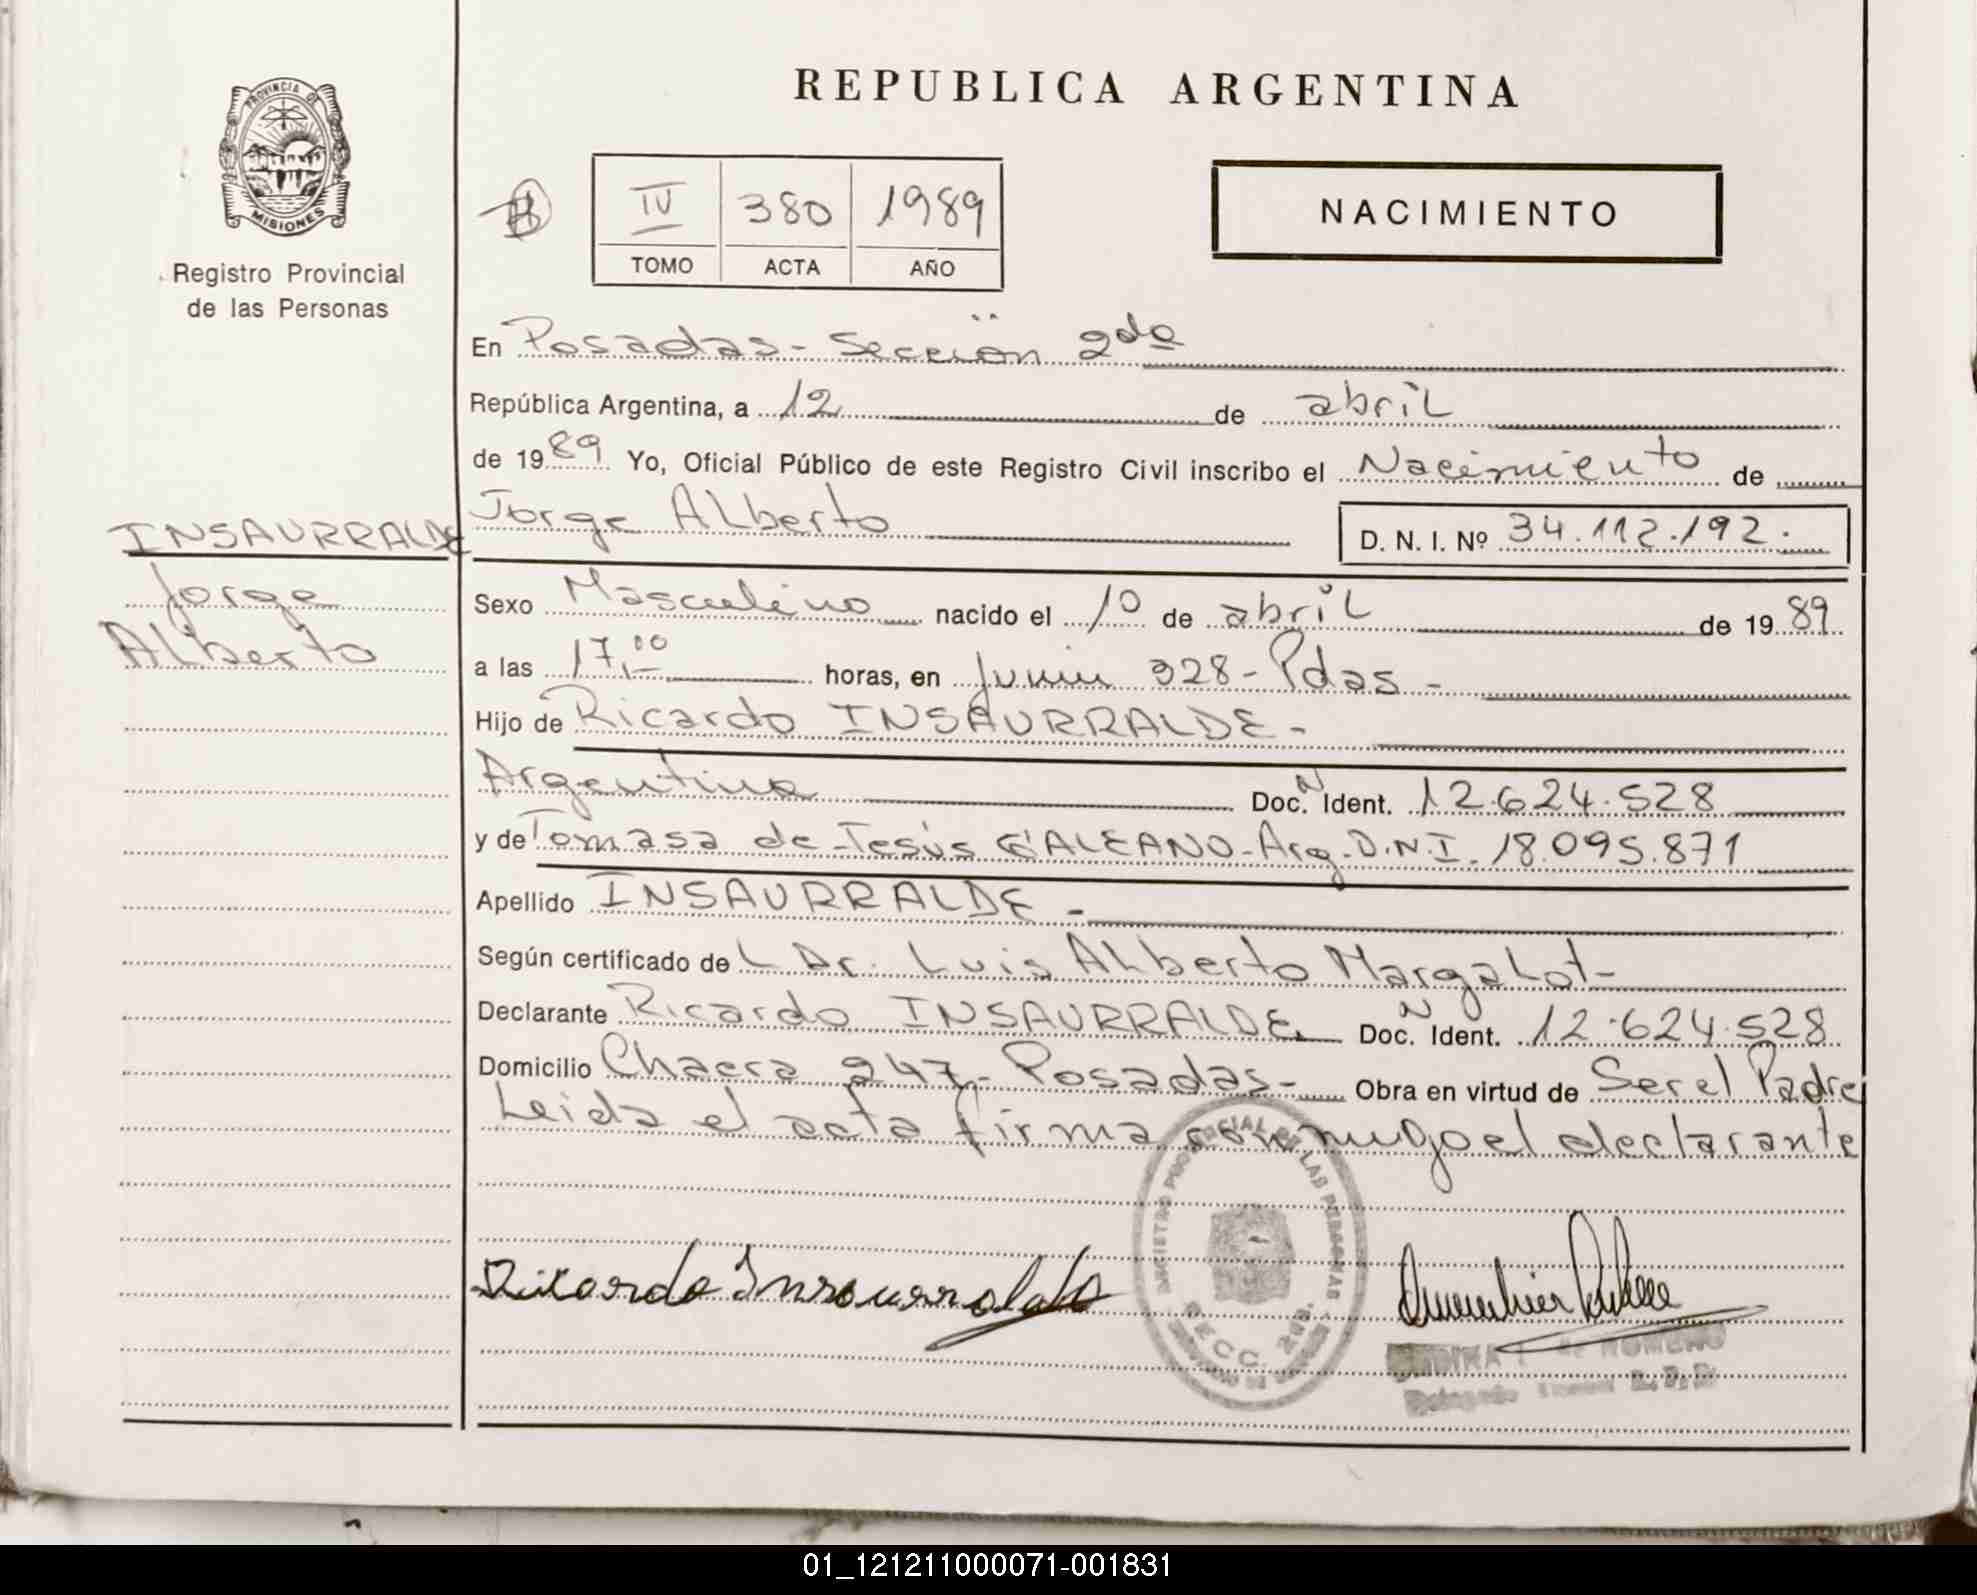 REPUBLICA ARGENTINA
PROVINCIA DE
MISIONES
Registro Provincial
de las Personas
IV 380 1989
TOMO ACTA AÑO
NACIMIENTO
En Posadas - Sección 2da
República Argentina, a 12 de abril
de 1989 Yo, Oficial Público de este Registro Civil inscribo el Nacimiento de
Jorge Alberto D. N. I. Nº 34.112.192.
INSAURRALDE
Jorge
Alberto
Sexo Masculino nacido el 10 de abril de 1989
a las 17,00 horas, en Junin 328 - Pdas -
Hijo de Ricardo INSAURRALDE -
Argentina Doc. N Ident. 12.624.528
y de Tomasa de Jesús GALEANO - Arg. D.N.I. 18.095.871
Apellido INSAURRALDE -
Según certificado de L Dr. Luis Alberto Margalot -
Declarante Ricardo INSAURRALDE Doc. N Ident. 12.624.528
Domicilio Chacra 247 - Posadas - Obra en virtud de Ser el Padre
Leida el acta firma conmigo el declarante
REGISTRO PROVINCIAL DE LAS PERSONAS
SECC. 2da.
Ricardo Insaurralde
DE ROMERO
Delegado R.P.P.
01_121211000071-001831